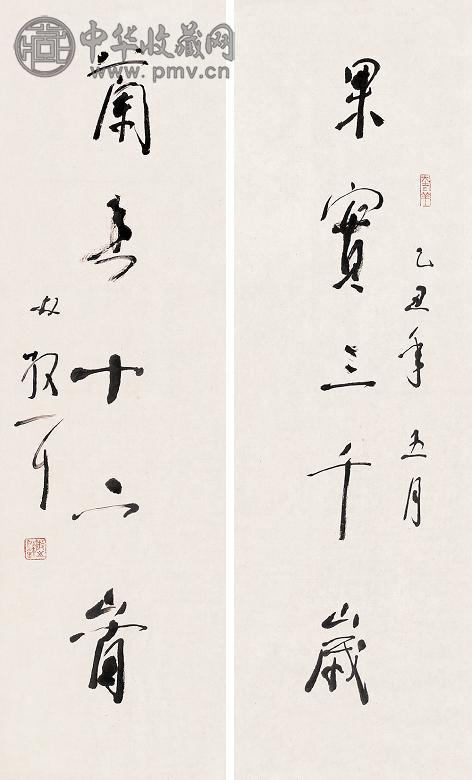 中华收藏网
www.pmv.cn
果實三千歲
乙丑年五月
蘭十
林散耳